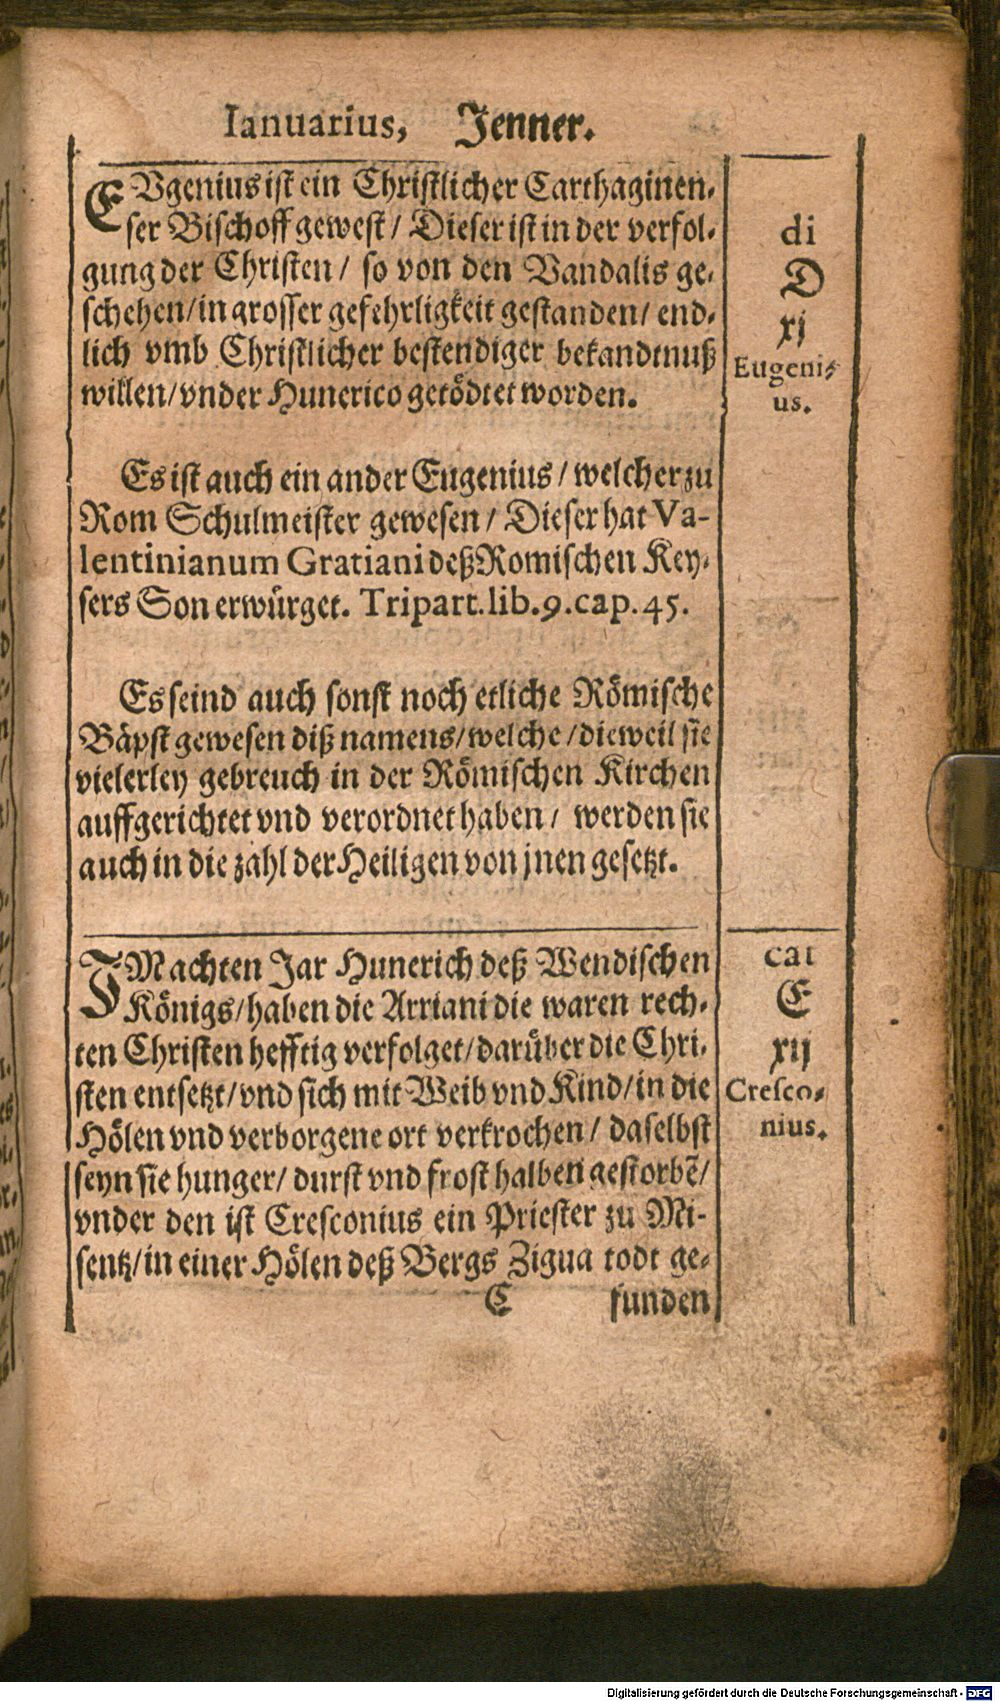 Ianuarius, Jenner.
EVgenius ist ein Christlicher Carthaginen-
ser Bischoff gewest / Dieser ist in der verfol-
gung der Christen / so von den Vandalis ge-
schehen / in grosser gefehrligkeit gestanden / end-
lich vmb Christlicher bestendiger bekandtnuß
willen / vnder Hunerico getödtet worden.
di
D
xj
Eugeni-
us.
Es ist auch ein ander Eugenius / welcher zu
Rom Schulmeister gewesen / Dieser hat Va-
lentinianum Gratiani deß Romischen Key-
sers Son erwürget. Tripart. lib. 9. cap. 45.
Es seind auch sonst noch etliche Römische
Bäpst gewesen diß namens / welche / dieweil sie
vielerley gebreuch in der Römischen Kirchen
auffgerichtet vnd verordnet haben / werden sie
auch in die zahl der Heiligen von jnen gesetzt.
IM achten Jar Hunerich deß Wendischen
Königs / haben die Arriani die waren rech-
ten Christen hefftig verfolget / darüber die Chri-
sten entsetzt / vnd sich mit Weib vnd Kind / in die
Hölen vnd verborgene ort verkrochen / daselbst
seyn sie hunger / durst vnd frost halben gestorbē /
vnder den ist Cresconius ein Priester zu Mi-
sentz / in einer Hölen deß Bergs Zigua todt ge-
C funden
cal
E
xij
Cresco-
nius.
Digitalisierung gefördert durch die Deutsche Forschungsgemeinschaft - DFG